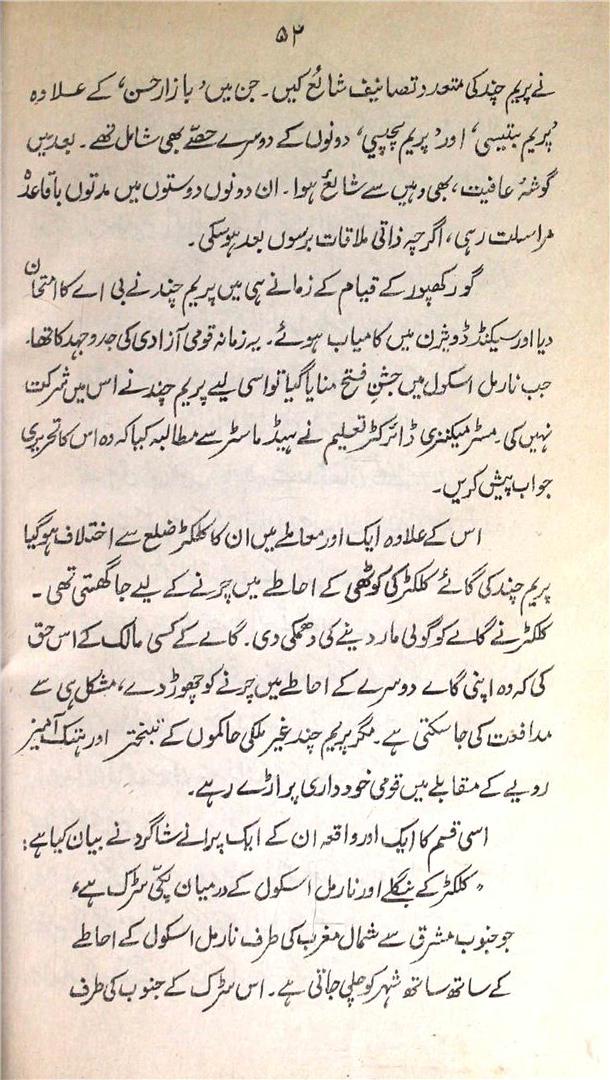 ۵۲
نے پریم چند کی متعدد تصانیف شائع کیں۔ جن میں ’بازارِ حسن‘ کے علاوہ
’پریم بتیسی‘ اور ’پریم پچیسی‘ دونوں کے دوسرے حصّے بھی شامل تھے۔ بعد میں
گوشۂ عافیت، بھی وہیں سے شائع ہوا۔ ان دونوں دوستوں میں مدتوں باقاعدہ
مراسلت رہی، اگرچہ ذاتی ملاقات برسوں بعد ہوسکی۔
گورکھپور کے قیام کے زمانے ہی میں پریم چند نے بی اے کا امتحان
دیا اور سیکنڈ ڈویژن میں کامیاب ہوئے۔ یہ زمانہ قومی آزادی کی جدوجہد کا تھا۔
جب نارمل اسکول میں جشنِ فتح منایا گیا تو اسی لیے پریم چند نے اس میں شرکت
نہیں کی۔ مسٹر میکنزی ڈائرکٹر تعلیم نے ہیڈ ماسٹر سے مطالبہ کیا کہ وہ اس کا تحریری
جواب پیش کریں۔
اس کے علاوہ ایک اور معاملے میں ان کا کلکٹر ضلع سے اختلاف ہوگیا
پریم چند کی گائے کلکٹر کی کوٹھی کے احاطے میں چرنے کے لیے جا گھستی تھی۔
کلکٹر نے گائے کو گولی مار دینے کی دھمکی دی۔ گائے کے کسی مالک کے اس حق
کی کہ وہ اپنی گائے دوسرے کے احاطے میں چرنے کو چھوڑ دے، مشکل ہی سے
مدافعت کی جاسکتی ہے۔ مگر پریم چند غیر ملکی حاکموں کے تبختر اور ہتک آمیز
رویے کے مقابلے میں قومی خودداری پر اڑے رہے۔
اسی قسم کا ایک اور واقعہ ان کے ایک پرانے شاگرد نے بیان کیا ہے:
”کلکٹر کے بنگلے اور نارمل اسکول کے درمیان پکّی سڑک ہے،
جو جنوب مشرق سے شمال مغرب کی طرف نارمل اسکول کے احاطے
کے ساتھ ساتھ شہر کو چلی جاتی ہے۔ اس سڑک کے جنوب کی طرف